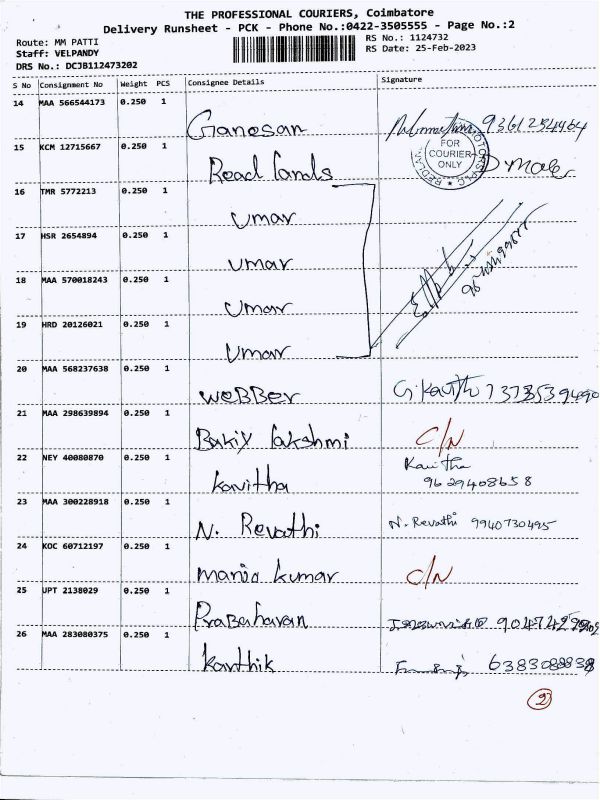 THE PROFESSIONAL COURIERS, Coimbatore
Delivery Runsheet - PCK - Phone No.:0422-3505555 - Page No.:2
Route: MM PATTI
Staff: VELPANDY
DRS No.: DCJB112473202
RS No.: 1124732
RS Date: 25-Feb-2023
S No Consignment No Weight PCS Consignee Details Signature
14 MAA 566544173 0.250 1
Ganesan 9361254464
15 KCM 12715667 0.250 1
Read lands
FOR COURIER ONLY
16 TMR 5772213 0.250 1
Umar
17 HSR 2654894 0.250 1
Umar
18 MAA 570018243 0.250 1
Umar
19 HRD 20126021 0.250 1
Umar
20 MAA 568237638 0.250 1
WEBBER
21 MAA 298639894 0.250 1
lakshmi C/N
22 NEY 40080870 0.250 1
Kavitha Kavitha
9629408658
23 MAA 300228918 0.250 1
N. Revathi N. Revathi 9940730495
24 KOC 60712197 0.250 1
kumar C/N
25 UPT 2138029 0.250 1
Prabaharan
26 MAA 283080375 0.250 1
Karthik 6383088838
2